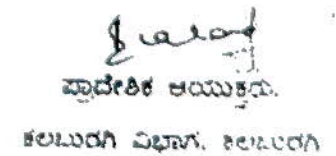 ಪ್ರಾದೇಶಿಕ ಆಯುಕ್ತರು,
ಕಲಬುರಗಿ ವಿಭಾಗ, ಕಲಬುರಗಿ